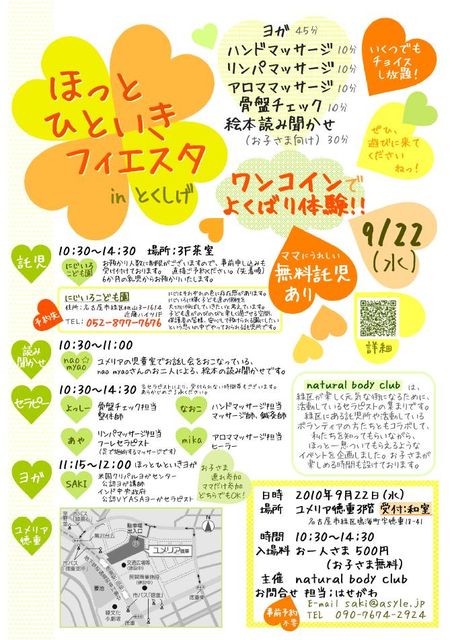 ほっと
ひといき
フィエスタ
in とくしげ
ヨガ 45分
ハンドマッサージ 10分
リンパマッサージ 10分
アロママッサージ 10分
骨盤チェック 10分
絵本読み聞かせ
(お子さま向け) 30分
いくつでも
チョイス
し放題!
ぜひ、
遊びに来て
ください
ねっ!
ワンコインで
よくばり体験!!
9/22
(水)
ママにうれしい
無料託児
あり
詳細
託児
10:30〜14:30 場所:3F茶室
にじいろ
こども園
お預かり人数に制限がございますので、事前申し込みも
受け付けております。 直接ご予約ください。(先着順)
6か月の乳児からお預かりいたします。
予約先
にじいろこども園
TEL: 052-877-7676
読み
聞かせ
10:30〜11:00
nao☆
myao
ユメリアの児童室でお話し会をおこなっている、
nao myaoさんのお二人による、絵本の読み聞かせです。
セラピー
10:30〜14:30
各セラピストにより、受付られない時間帯もございます。
あらかじめご了承ください。
よっしー
骨盤チェック担当
整体師
なおこ
ハンドマッサージ担当
マッサージ師、鍼灸師
あや
リンパマッサージ担当
フーレセラピスト
(足で施術するマッサージです)
mika
アロママッサージ担当
ヒーラー
ヨガ
11:15〜12:00 ほっとひといきヨガ
SAKI
米国クリパルヨガセンター
公認ヨガ講師
インド中央政府
公認VYASAヨーガセラピスト
お子さま
連れ参加
ママだけ参加
どちらでもOK!
natural body club は、
緑区が楽しく元気な街になるために、
活動しているセラピストの集まりです。
緑区にある託児所や活動している
ボランティアの方たちともコラボして、
私たちを知ってもらいながら、
ほっと一息ついてもらえるような
イベントを企画しました。お子さまが
楽しめる時間も設けております。
ユメリア
徳重
ユメリア徳重
日時 2010年9月22日(水)
場所 ユメリア徳重3階 受付:和室
名古屋市緑区鳴海町字徳重18-41
時間 10:30〜14:30
入場料 お一人さま 500円
(お子さま無料)
主催 natural body club
お問合せ 担当:はせがわ
E-mail saki@asyle.jp
TEL 090-7674-2924
事前予約
不要